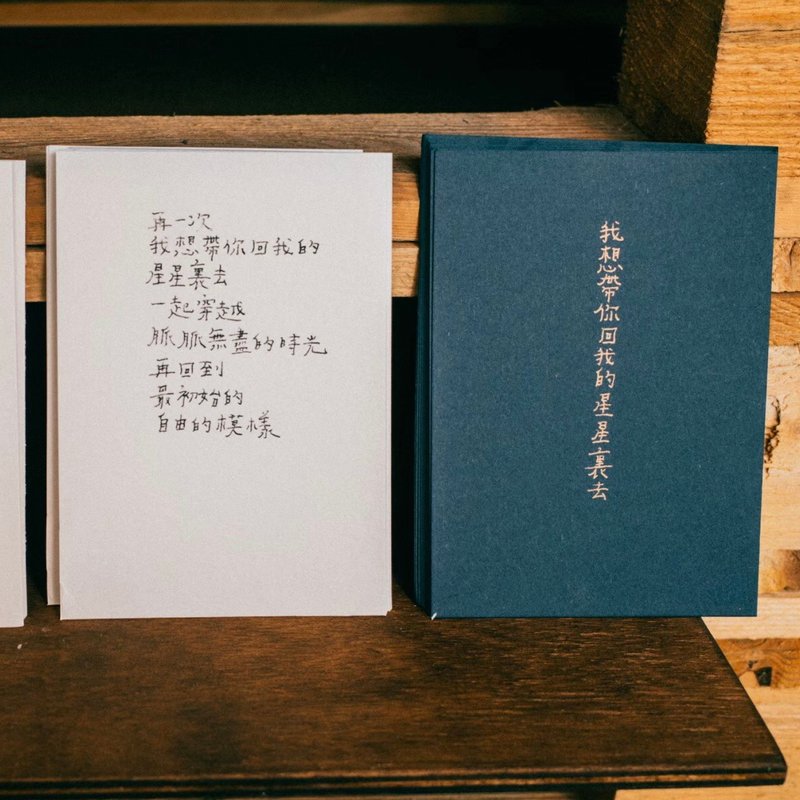 再一次
我想帶你回我的
星星裏去
一起穿越
脈脈無盡的時光
再回到
最初始的
自由的模樣
我想帶你回我的星星裏去